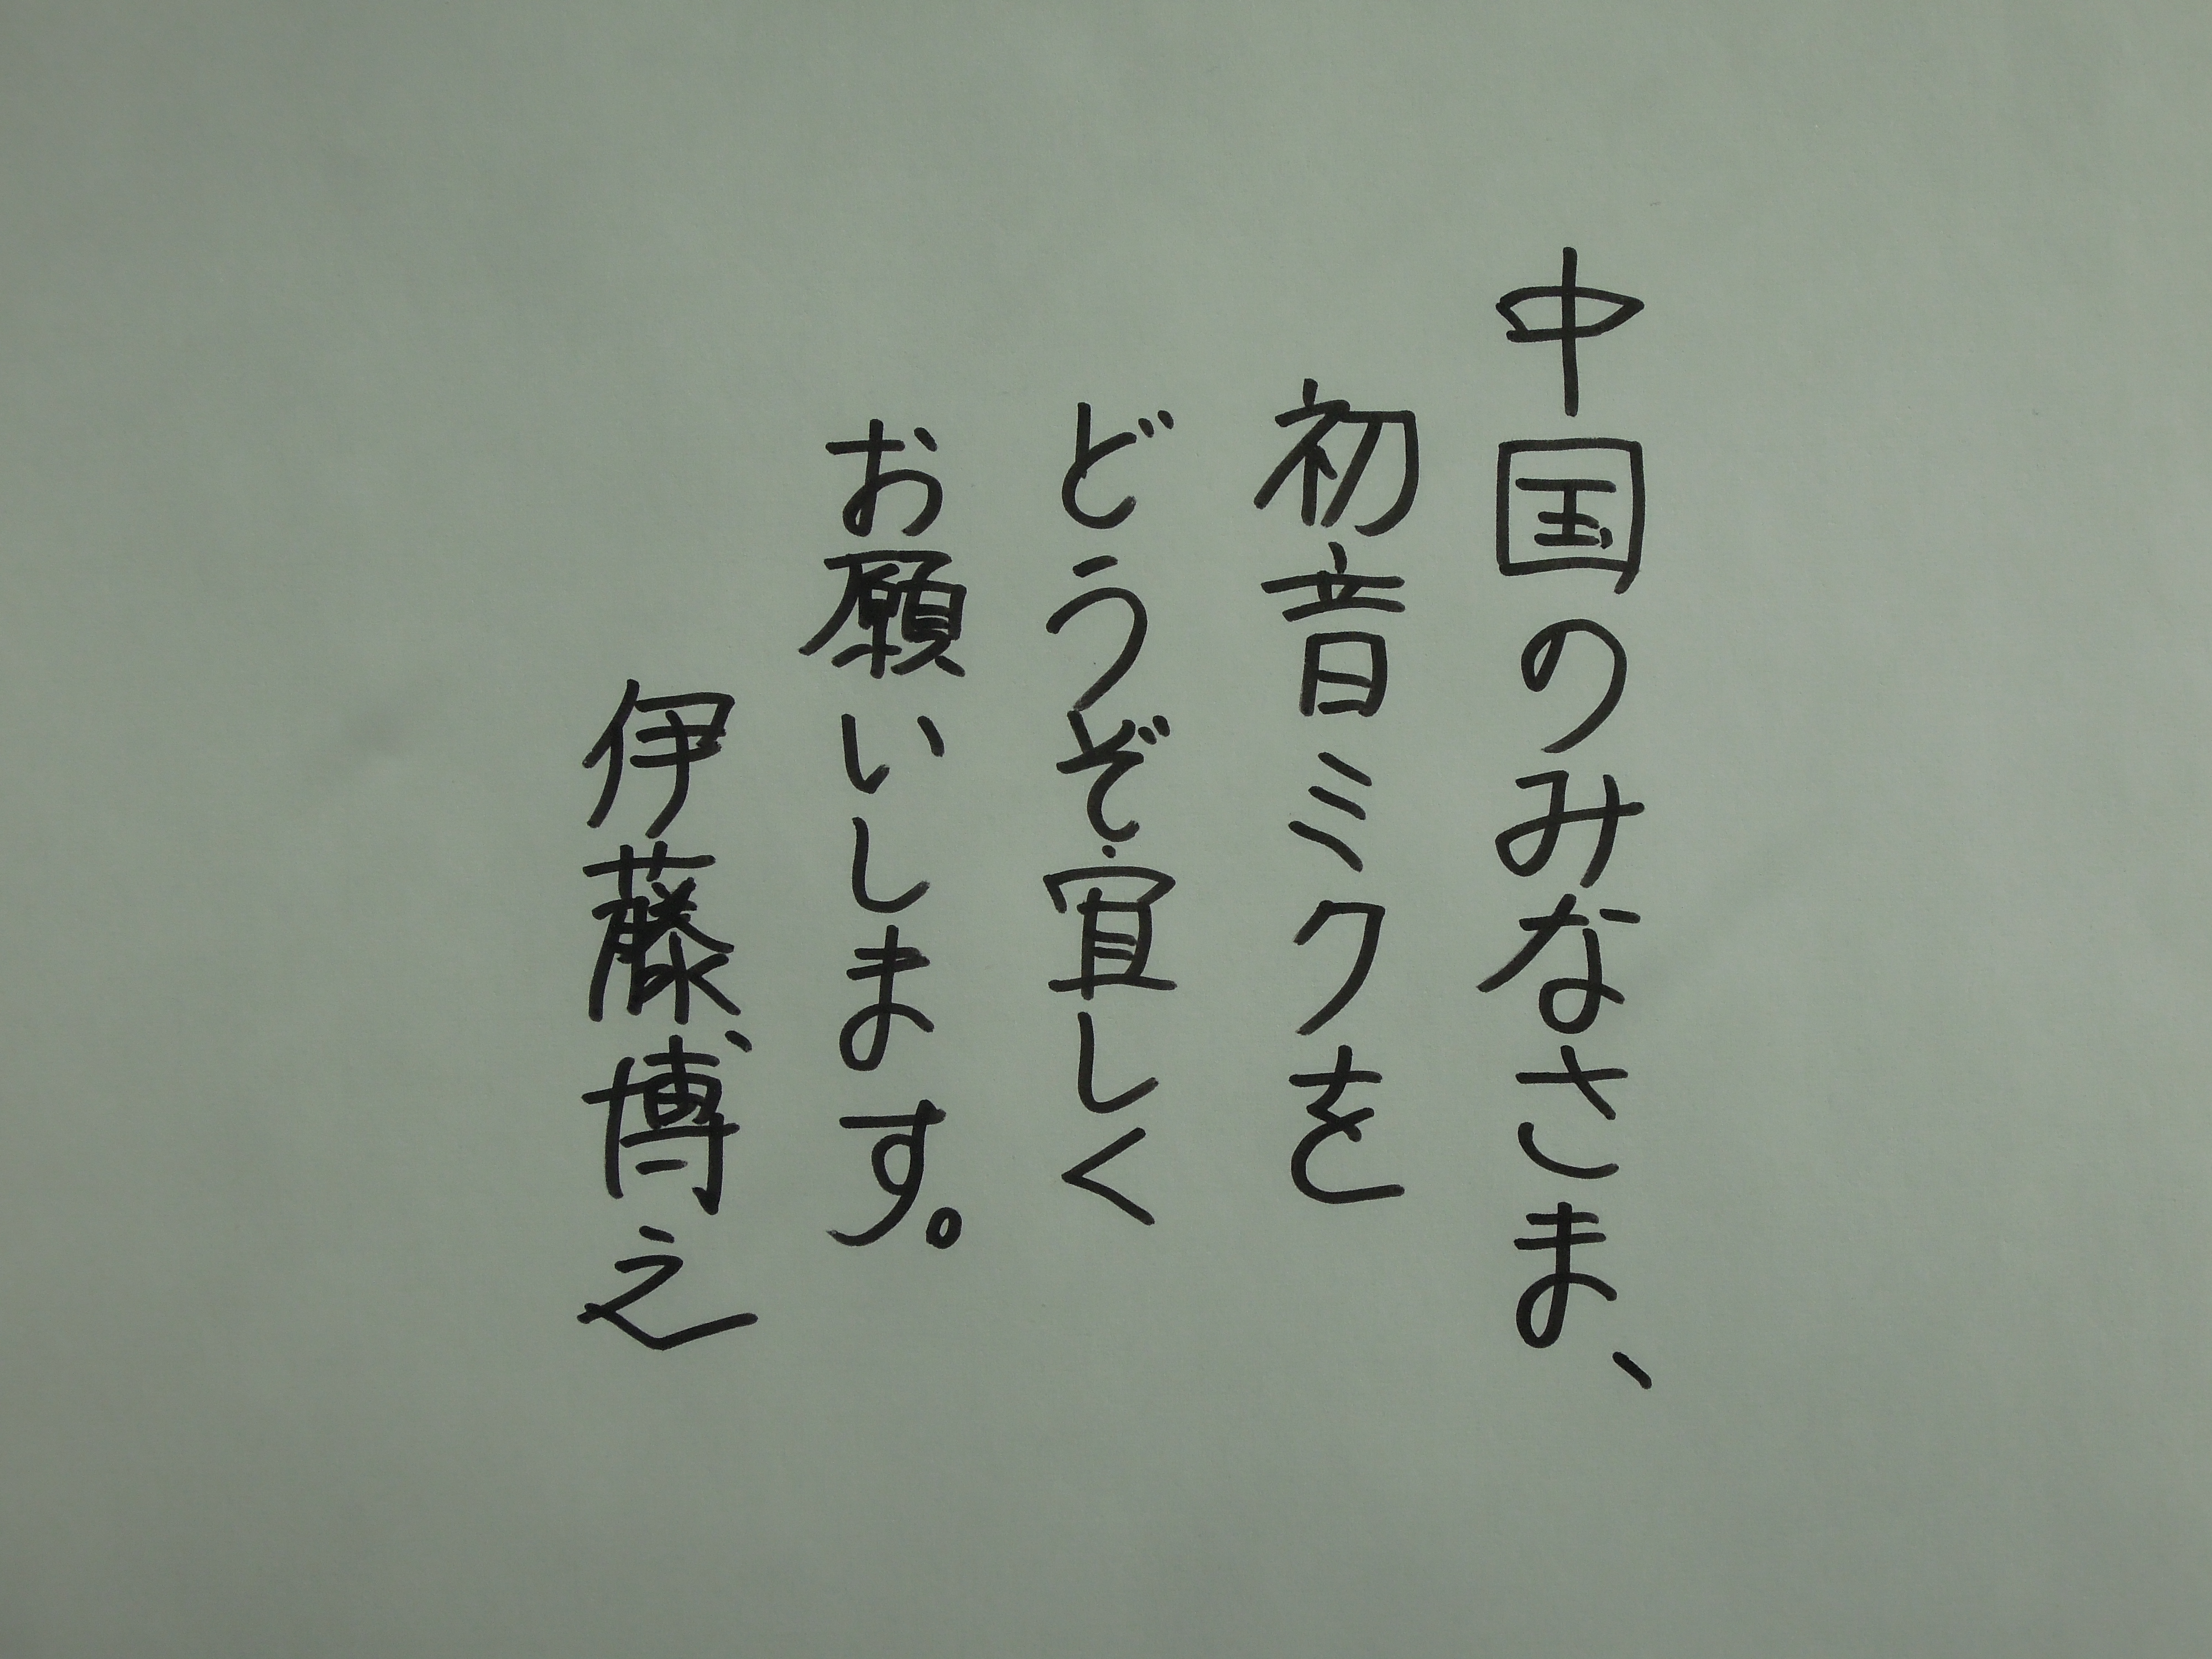 中国のみなさま、
初音ミクを
どうぞ宜しく
お願いします。
伊藤博之